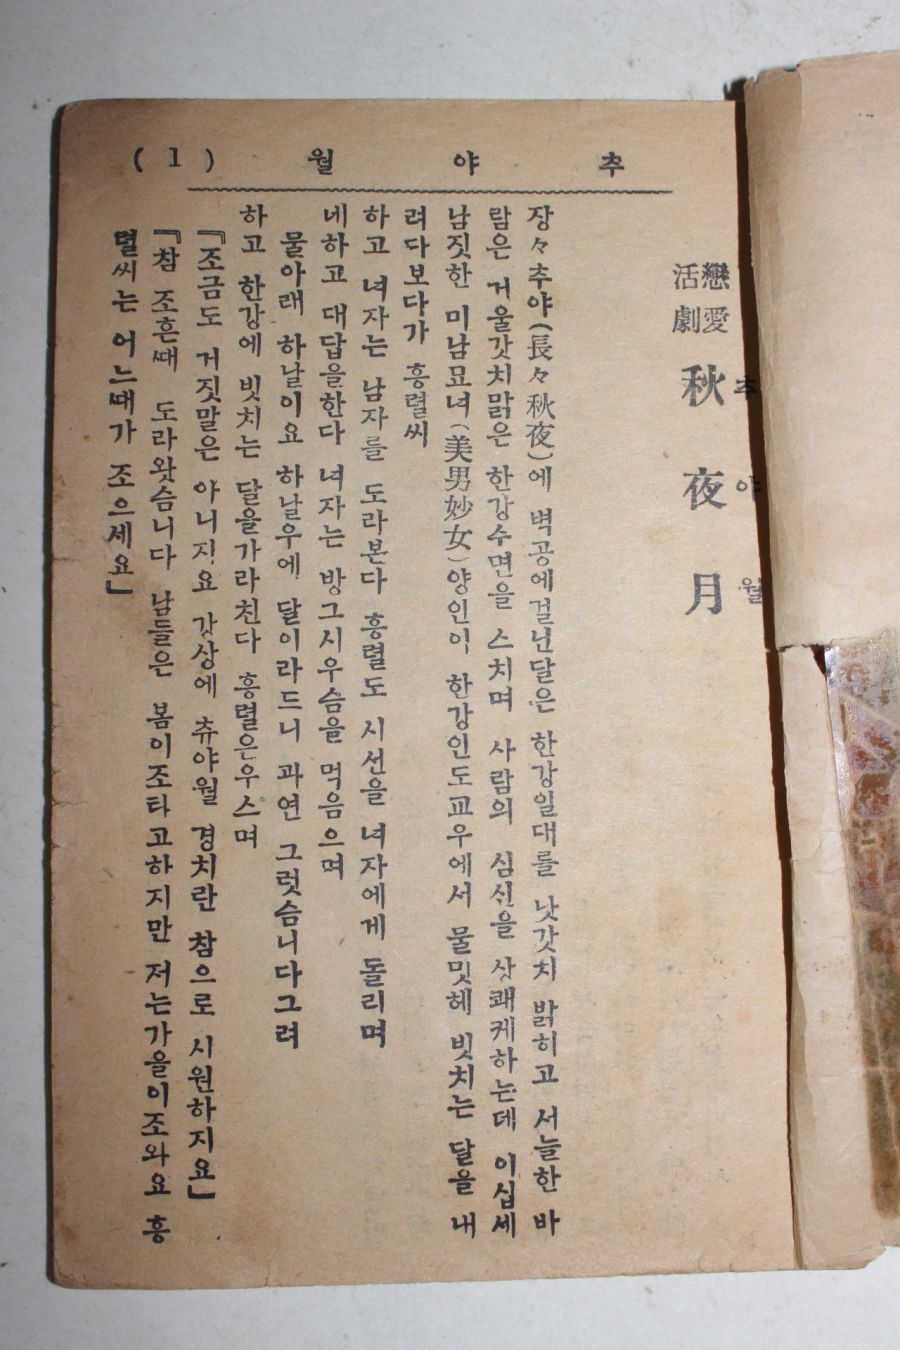 추야월 (1)
戀愛
活劇
秋夜月
추야월
장々추야(長々秋夜)에 벽공에걸닌달은 한강일대를 낫갓치 밝히고 서늘한 바
람은 거울갓치맑은 한강수면을 스치며 사람의 심신을 상쾌케하는데 이십세
남짓한 미남묘녀(美男妙女)양인이 한강인도교우에서 물밋헤 빗치는 달을 내
려다보다가 흥렬씨
하고 녀자는 남자를 도라본다 흥렬도 시선을 녀자에게 돌리며
네하고 대답을한다 녀자는 방그시우슴을 먹음으며
물아래 하날이요 하날우에 달이라드니 과연 그럿슴니다그려
하고 한강에 빗치는 달을가라친다 흥렬은우스며
『조금도 거짓말은 아니지요 강상에 츄야월 경치란 참으로 시원하지요』
『참 조흔ᄯᅢ 도라왓슴니다 남들은 봄이조타고하지만 저는가을이조와요 흥
렬씨는 어느ᄯᅢ가 조으세요』